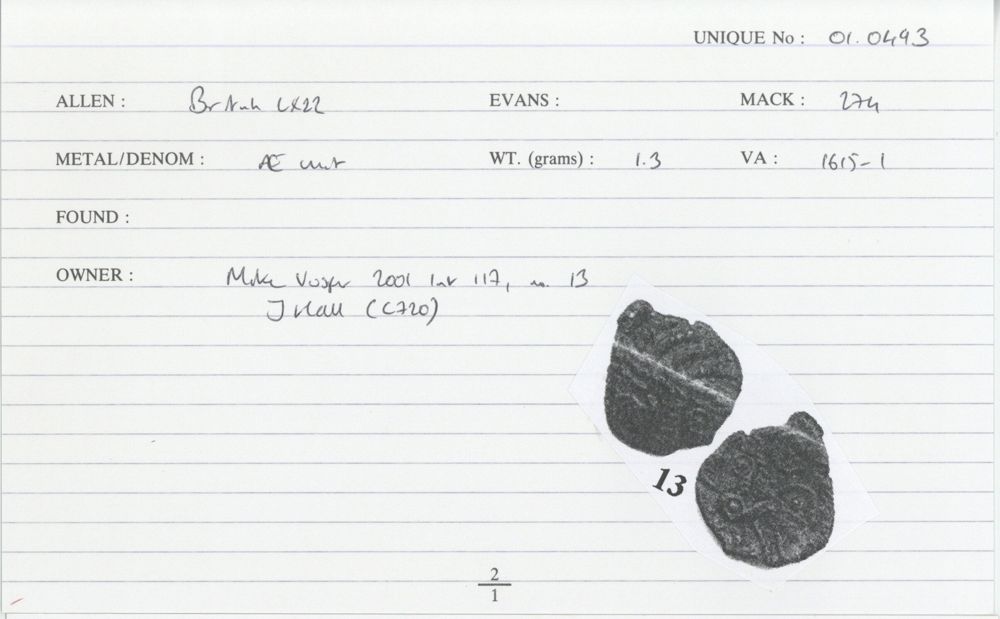 UNIQUE No : 01.0493
ALLEN : British LX22 EVANS : MACK : 274
METAL/DENOM : Æ unit WT. (grams) : 1.3 VA : 1615-1
FOUND :
OWNER : Mike Vosper 2001 list 117, no. 13
J Hall (C720)
13
2
1